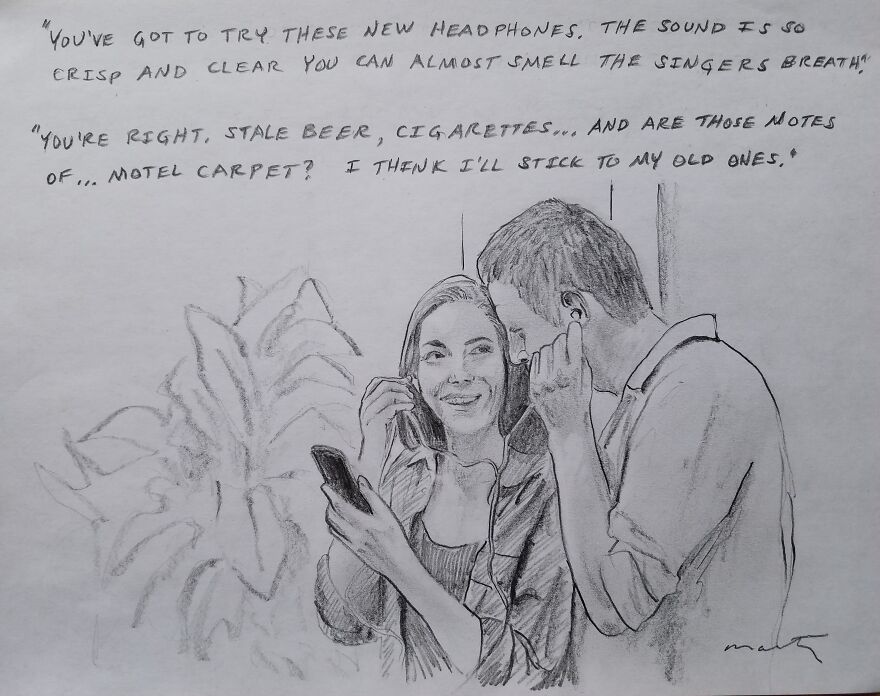 "YOU'VE GOT TO TRY THESE NEW HEADPHONES. THE SOUND IS SO
CRISP AND CLEAR YOU CAN ALMOST SMELL THE SINGERS BREATH."
"YOU'RE RIGHT. STALE BEER, CIGARETTES... AND ARE THOSE NOTES
OF... MOTEL CARPET? I THINK I'LL STICK TO MY OLD ONES."